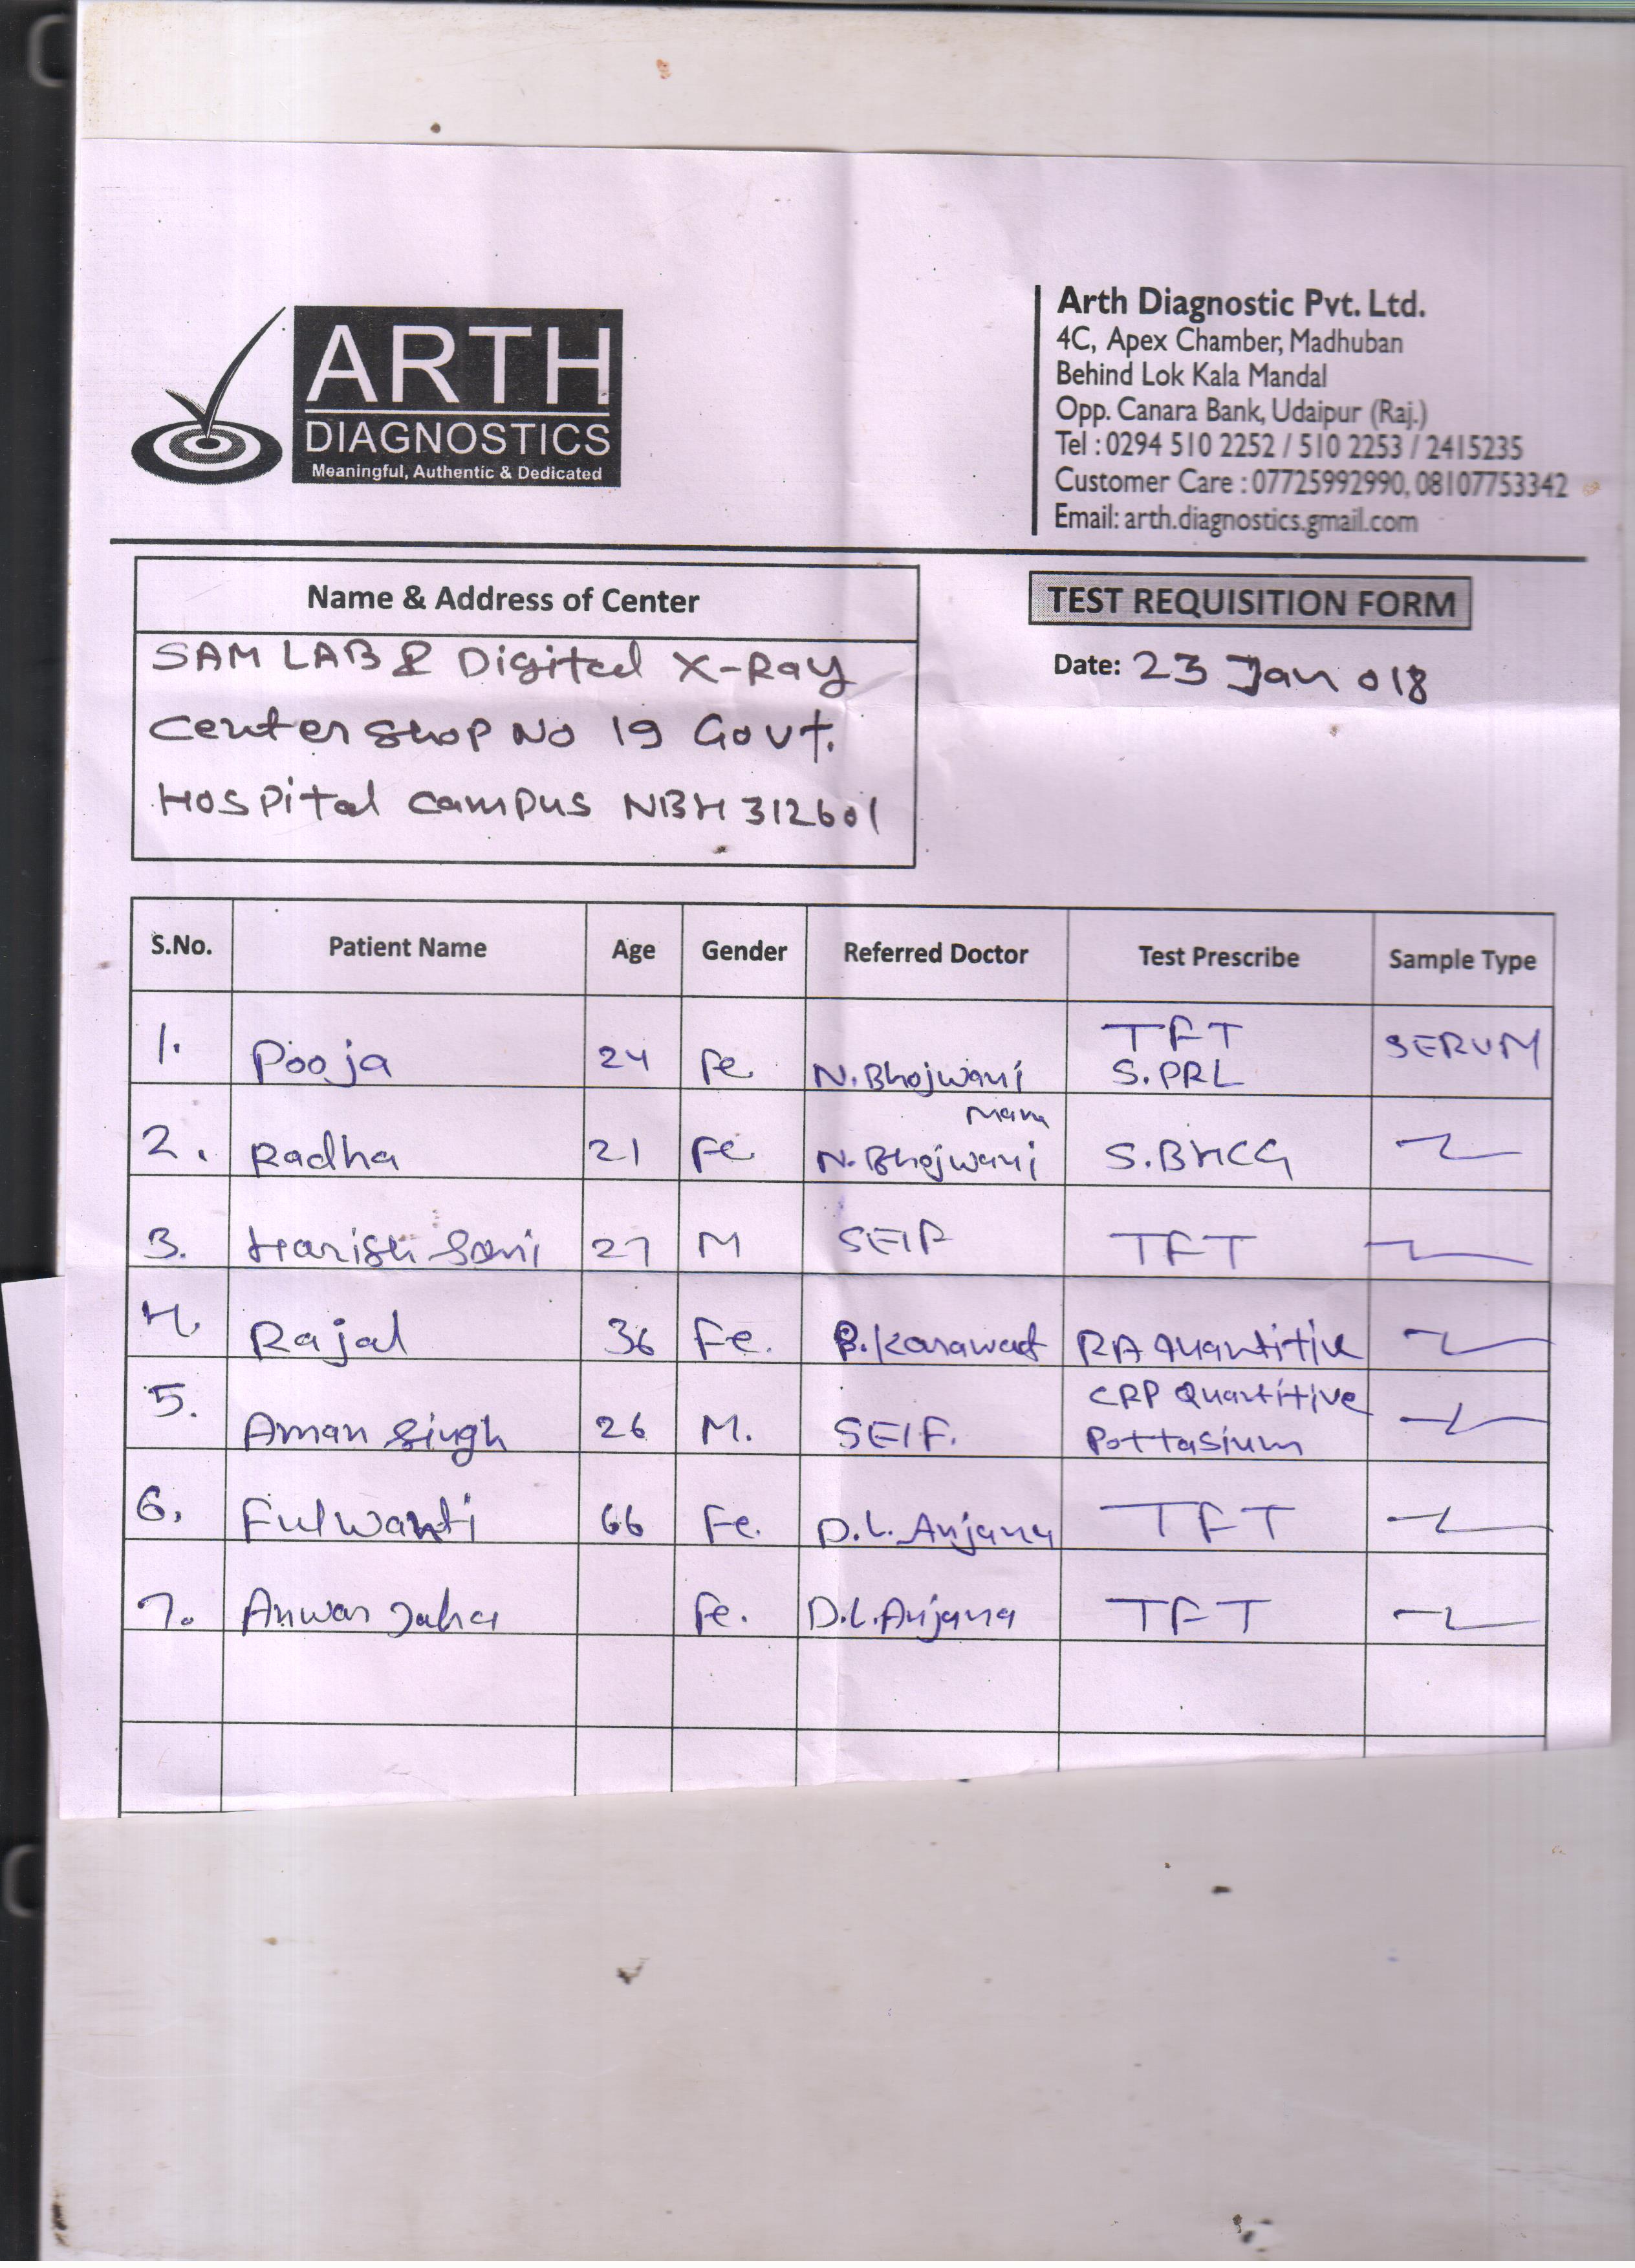 ARTH
DIAGNOSTICS
Meaningful, Authentic & Dedicated
Arth Diagnostic Pvt. Ltd.
4C, Apex Chamber, Madhuban
Behind Lok Kala Mandal
Opp. Canara Bank, Udaipur (Raj.)
Tel : 0294 510 2252 / 510 2253 / 2415235
Customer Care : 07725992990, 08107753342
Email: arth.diagnostics.gmail.com
Name & Address of Center
SAM LAB & Digital X-Ray
Center Shop No 19 Govt.
Hospital campus NBH 312601
TEST REQUISITION FORM
Date: 23 Jan 018
S.No. Patient Name Age Gender Referred Doctor Test Prescribe Sample Type
1. Pooja 24 Fe N.Bhojwani TFT S.PRL SERUM
2. Radha 21 Fe N.Bhojwani Mam S.BHCG
3. Harish Soni 27 M SEIF TFT
4. Rajal 36 Fe. B.Karawat RA Quantitive
5. Aman Singh 26 M. SEIF. CRP Quantitive Pottasium
6. Fulwanti 66 Fe. D.L.Anjana TFT
7. Anwar Fe. D.L.Anjana TFT